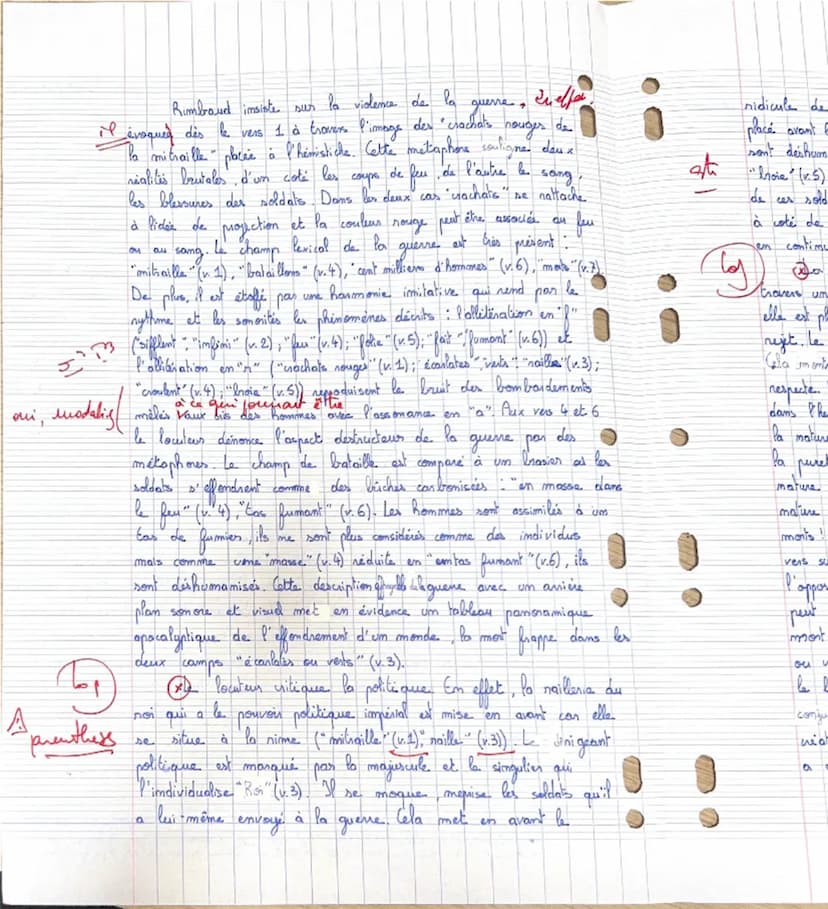 Rimbaud insiste sur la violence de la guerre, En effet,
il évoque dès le vers 1 à travers l'image des "crachats rouges de
la mitraille" placée à l'hémistiche. Cette métaphore souligne deux
réalités brutales, d'un coté les coups de feu, de l'autre le sang,
les blessures des soldats. Dans les deux cas "crachats" se rattache
à l'idée de projection et la couleur rouge peut être associée au feu
ou au sang. Le champ lexical de la guerre est très présent :
"mitraille" (v.1), "bataillons" (v.4), "cent milliers d'hommes" (v.6), "morts" (v.7)
De plus, il est étoffé par une harmonie imitative qui rend par le
rythme et les sonorités les phénomènes décrits : l'allitération en "f"
("sifflent", "infini" (v.2) ; "feu" (v.4) ; "folie" (v.5) ; "fait", "fumant" (v.6)) et
l'allitération en "r" ("crachats rouges" (v.1) ; écarlates", verts", "raille" (v.3) ;
"croulent" (v.4) ; "broie" (v.5)) reproduisent le bruit des bombardements
à ce qui pourrait être
oui, modalisé
mêlés aux cris des hommes avec l'assonance en "a". Aux vers 4 et 6
le locuteur dénonce l'aspect destructeur de la guerre par des
métaphores. Le champ de bataille est comparé à un brasier où les
soldats s'effondrent comme des bûches carbonisées : "en masse dans
le feu" (v.4), "tas fumant" (v.6). Les hommes sont assimilés à un
tas de fumier, ils ne sont plus considérés comme des individus
mais comme une "masse" (v.4) réduite en "un tas fumant" (v.6), ils
sont déshumanisés. Cette description de la guerre avec un arrière
plan sonore et visuel met en évidence un tableau panoramique
apocalyptique de l'effondrement d'un monde, la mort frappe dans les
deux camps "écarlates ou verts" (v.3).
Le locuteur critique la politique. En effet, la raillerie du
roi qui a le pouvoir politique impérial est mise en avant car elle
parenthèses
se situe à la rime ("mitraille" (v.1), "raille" (v.3)). Le dirigeant
politique est marqué par la majuscule et le singulier qui
l'individualise "Roi" (v.3). Il se moque, méprise les soldats qu'il
a lui-même envoyé à la guerre. Cela met en avant le
ridicule de
placé avant l
sont déshum
"broie" (v.5)
de ces sold
à coté de
en contin
travers un
elle est pl
rejet. Le
Cela mont
respecte.
dans l'he
la natur
la puret
nature
nature
morts !
vers su
l'oppos
peut
mont
ou v
le l
conju
a